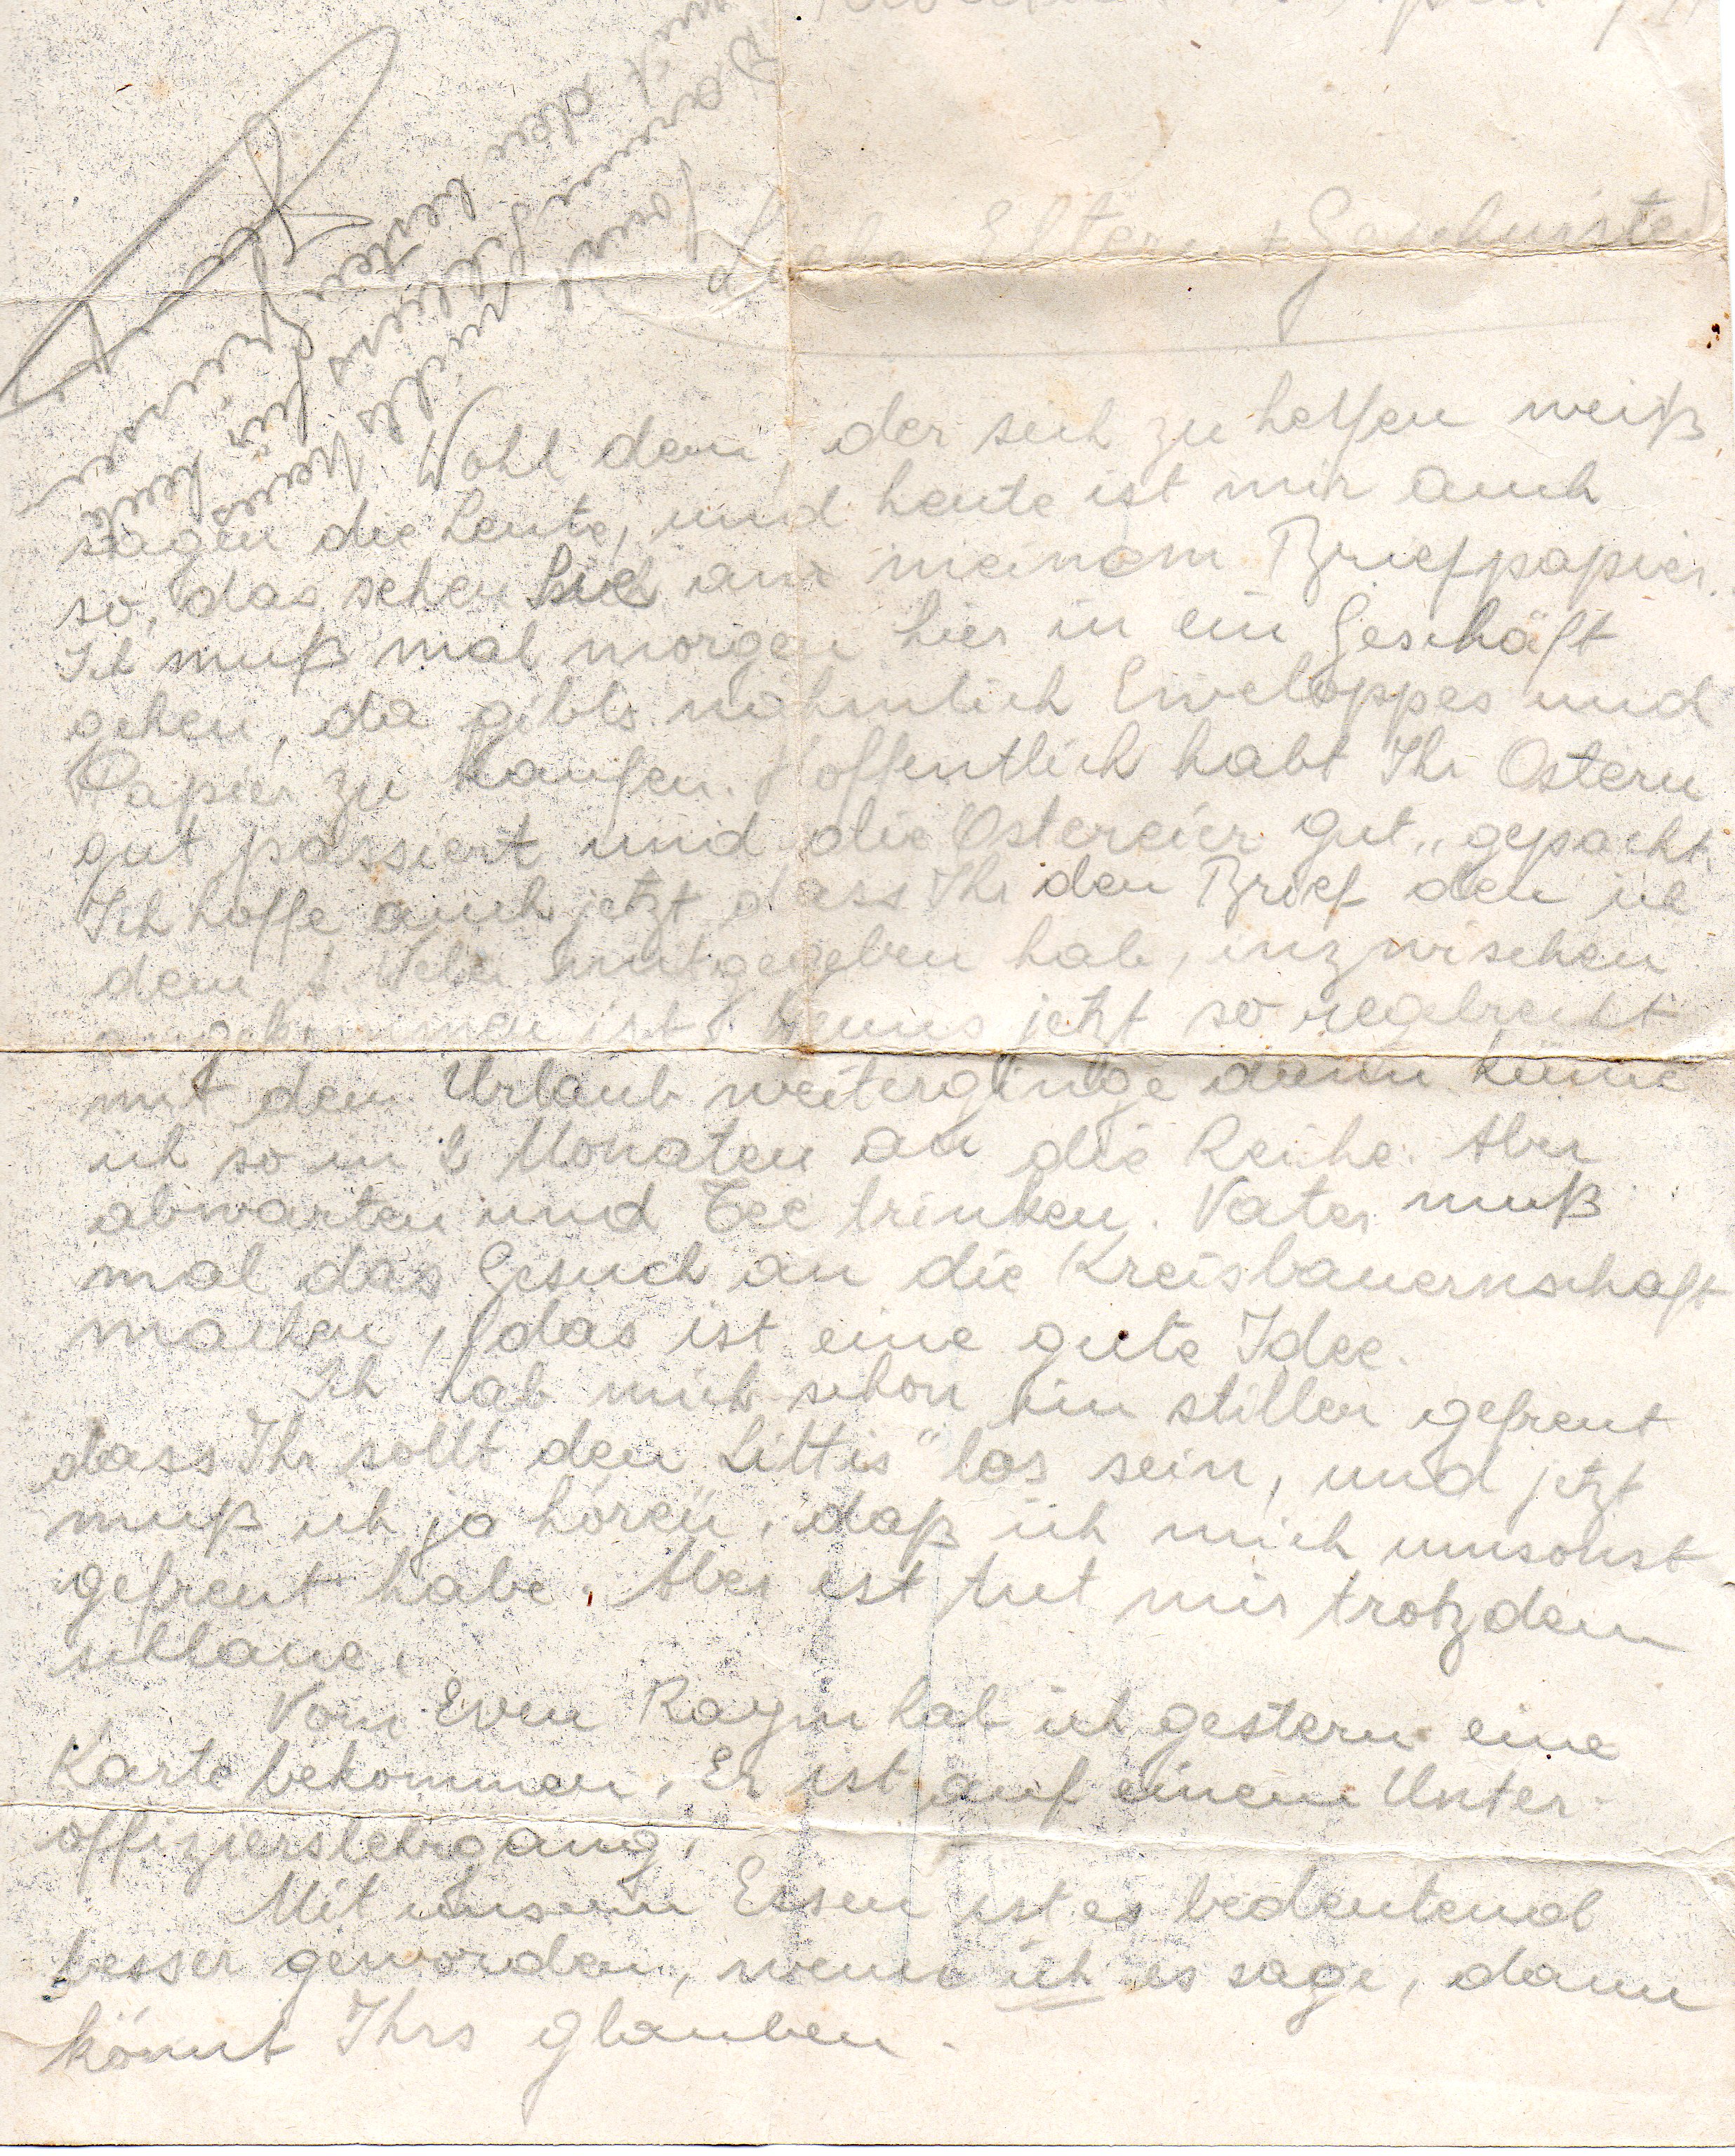 April
Liebe Eltern + Geschwister!
Wohl dem, der sich zu helfen weiß
sagen die Leute, und heute ist mir auch
so, das sehen Sie an meinem Briefpapier.
Ich muß mal morgen hier in ein Geschäft
gehen, da gibts nähmlich Enveloppes und
Papier zu kaufen. Hoffentlich habt Ihr Ostern
gut passiert und die Ostereier gut „gepackt
Ich hoffe auch jetzt dass Ihr den Brief den ich
dem mitgegeben hab, inzwischen
angekommen ist. Wenns jetzt so regelrecht
mit dem Urlaub weiterginge dann käme
ich so in 2 Monaten an die Reihe. Aber
abwarten und Tee trinken. Vater muß
mal das Gesuch an die Kreisbauernschaft
machen, das ist eine gute Idee.
Ich hab mich schon im stillen gefreut
dass Ihr sollt den Littis" los sein, und jetzt
muß ich ja hören, daß ich mich umsonst
gefreut habe. Aber est tut mir trotzdem
schlaue.
Vom Even Raym hab ich gestern eine
Karte bekommen. Er ist auf einem Unter-
offizierslehrgang.
Mit unserm Essen ist es bedeutend
besser geworden, wenn ich es sage, dann
könnt Ihrs glauben.